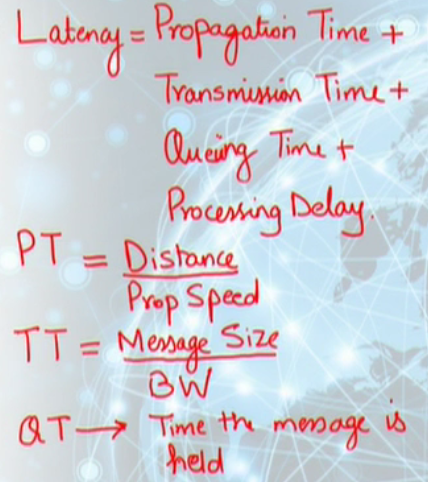 Latency = Propagation Time +
Transmission Time +
Queuing Time +
Processing Delay.
PT = Distance
Prop Speed
TT = Message Size
BW
QT → Time the message is
held